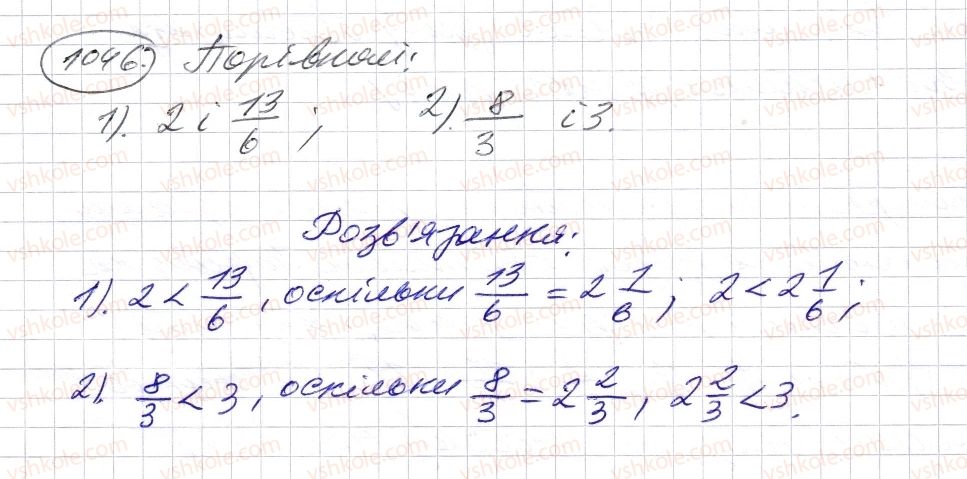 1046. Порівняй:
1). 2 і 13/6 ; 2). 8/3 і 3.
Розв'язання:
1). 2 < 13/6 , оскільки 13/6 = 2 1/6 ; 2 < 2 1/6 ;
2). 8/3 < 3 , оскільки 8/3 = 2 2/3 , 2 2/3 < 3.